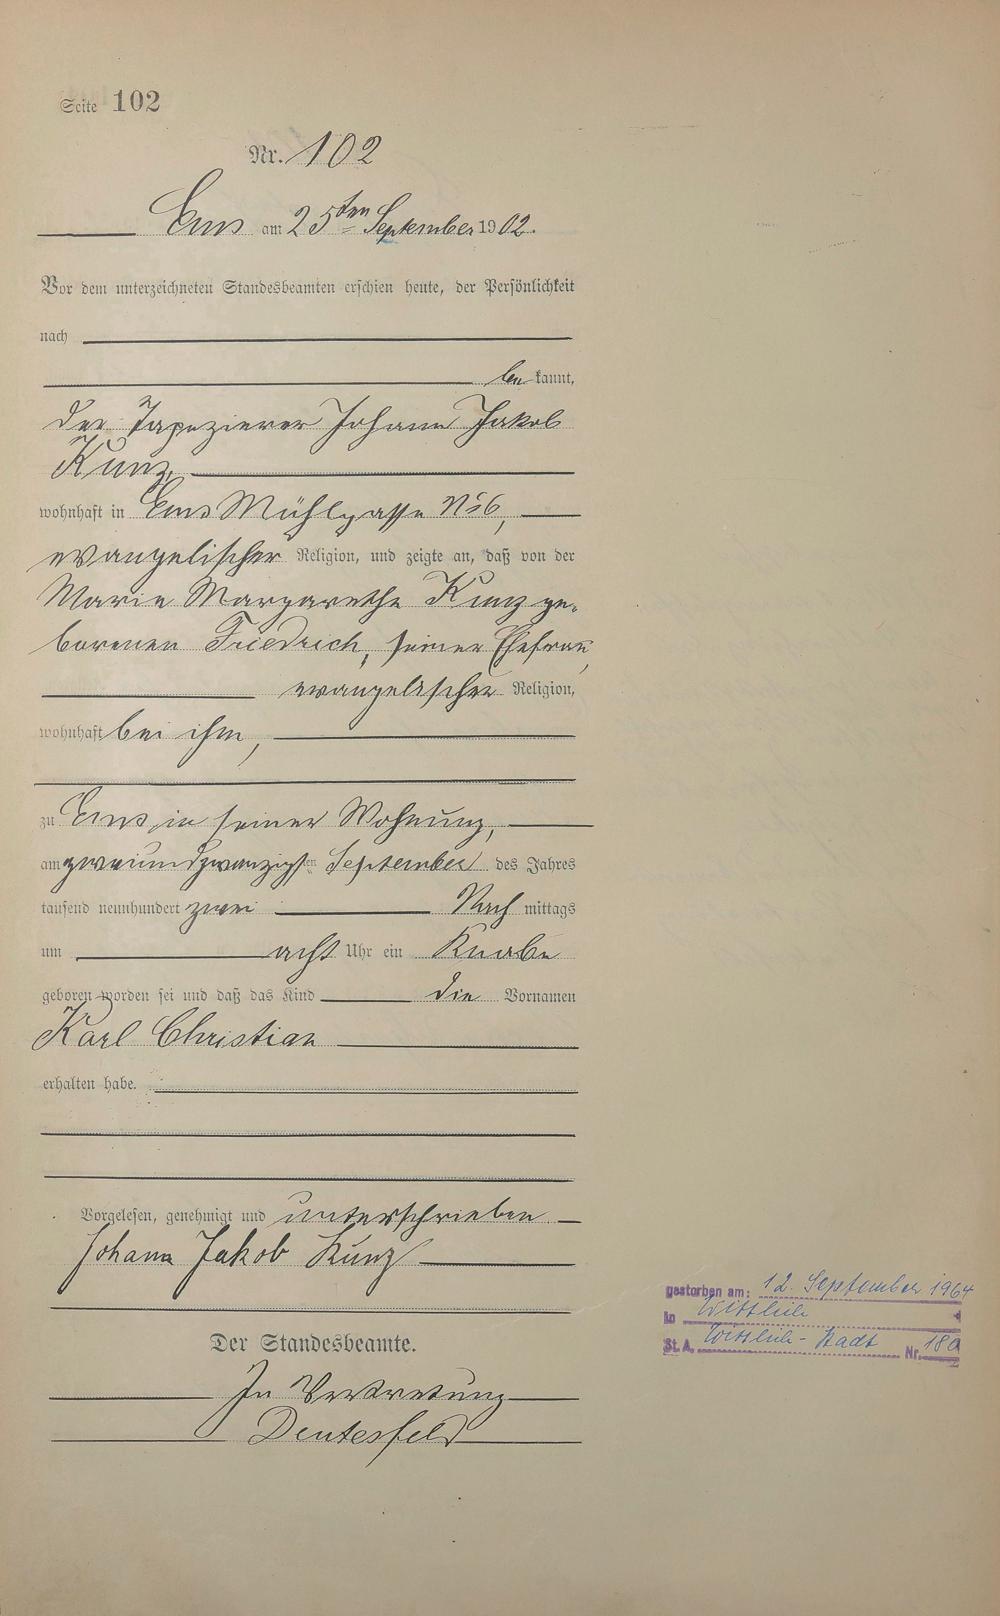 Seite 102
Nr. 102
Ems am 25ten September 1902.
Vor dem unterzeichneten Standesbeamten erschien heute, der Persönlichkeit
nach
bekannt,
der Tapezierer Johann Jakob
Kunz,
wohnhaft in Ems Mühlgasse No 6,
evangelischer Religion, und zeigte an, daß von der
Marie Margarethe Kunz ge-
borenen Friedrich, seiner Ehefrau,
evangelischer Religion,
wohnhaft bei ihm,
zu Ems, in seiner Wohnung,
am zweiundzwanzigsten September des Jahres
tausend neunhundert zwei Nachmittags
um acht Uhr ein Knabe
geboren worden sei und daß das Kind die Vornamen
Karl Christian
erhalten habe.
Vorgelesen, genehmigt und unterschrieben
Johann Jakob Kunz
Der Standesbeamte.
In Vertretung
Deutesfeld
gestorben am: 12. September 1964
in Wittlich
St. A. Wittlich-Stadt Nr. 180